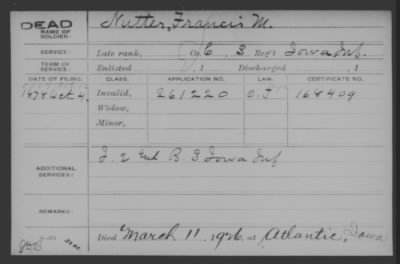 DEAD
NAME OF SOLDIER: Nutter, Francis M.
SERVICE: Late rank, Co. C, 3 Reg't Iowa Inf.
TERM OF SERVICE: Enlisted , 1 Discharged , 1
DATE OF FILING. CLASS. APPLICATION NO. LAW. CERTIFICATE NO.
1878 Oct. 4, Invalid, 261220 168409
Widow,
Minor,
ADDITIONAL SERVICES: B. 3 Iowa Inf
REMARKS:
Died March 11, 1926, at Atlantic, Iowa